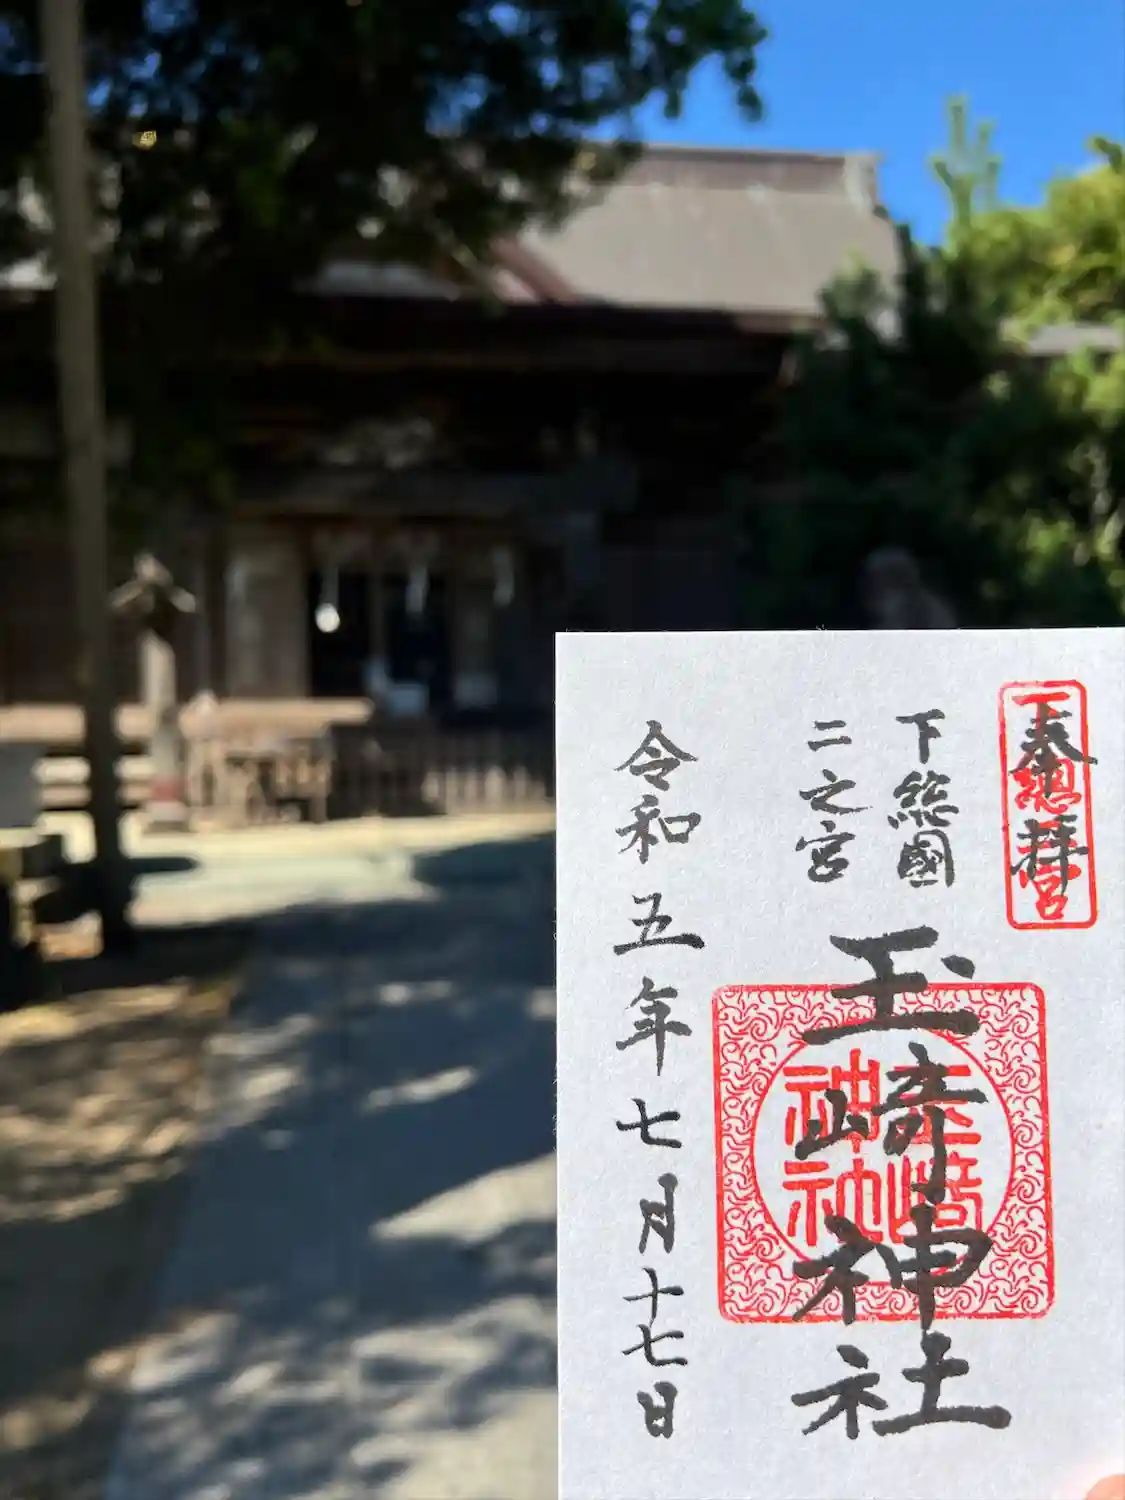 奉拝
下総二宮
下総國
二之宮
玉﨑神社
玉﨑神社
令和五年七月十七日